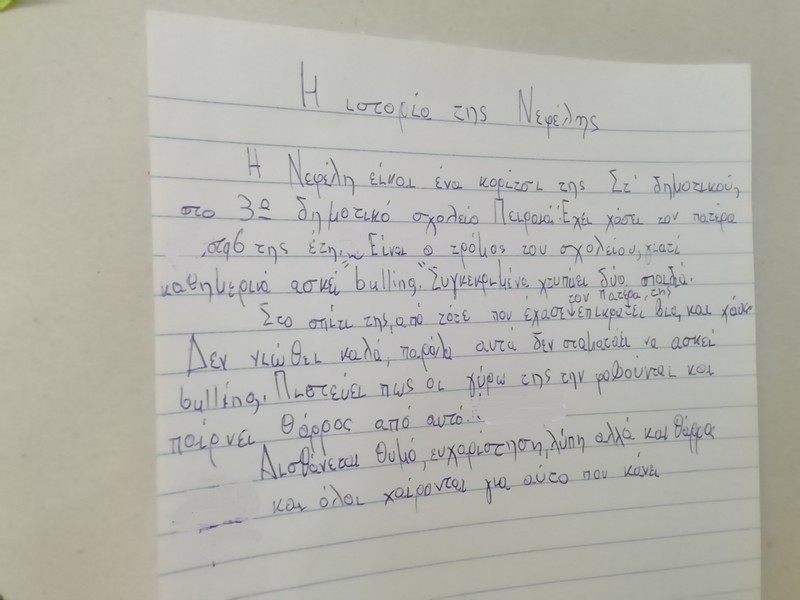 Η ιστορία της Νεφέλης
Η Νεφέλη είναι ένα κορίτσι της Στ' δημοτικού,
στο 3ο δημοτικό σχολείο Πειραιά. Έχει χάσει τον πατέρα
στα 6 της έτη. Είναι ο τρόμος του σχολείου, γιατί
καθημερινά ασκεί "bulling". Συγκεκριμένα χτυπάει δύο παιδιά.
τον πατέρα της
Στο σπίτι της, από τότε που έχασε επικρατεί βία και χάος.
Δεν νιώθει καλά, παρόλα αυτά δεν σταματάει να ασκεί
bulling. Πιστεύει πως οι γύρω της την φοβούνται και
παίρνει θάρρος από αυτό.
Αισθάνεται θυμό, ευχαρίστηση, λύπη αλλά και θάρρος
και όλοι χαίρονται για αύτο που κάνει